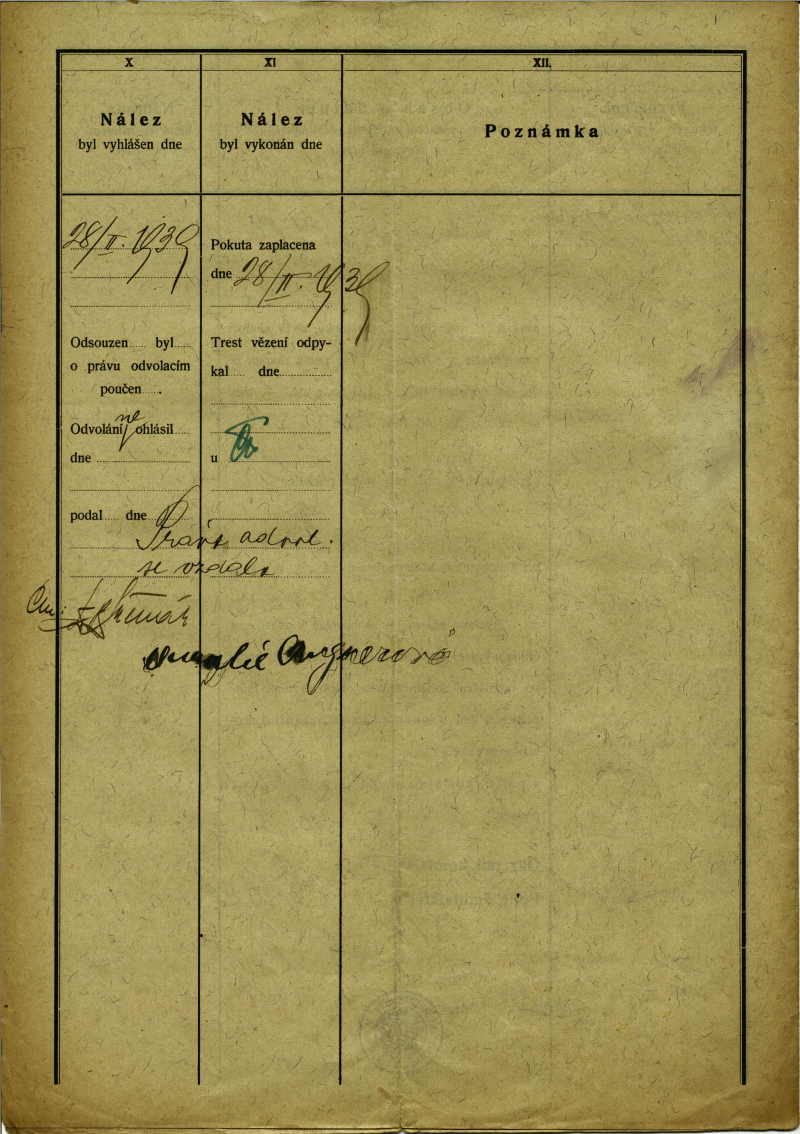 X
Nález
byl vyhlášen dne
28/II. 1939
Odsouzen byl
o právu odvolacím
poučen
Odvolání ne ohlásil
dne
podal dne
XI
Nález
byl vykonán dne
Pokuta zaplacena
dne 28/II. 1939
Trest vězení odpy-
kal dne
u
Práva odvol.
se vzdala
XII.
Poznámka